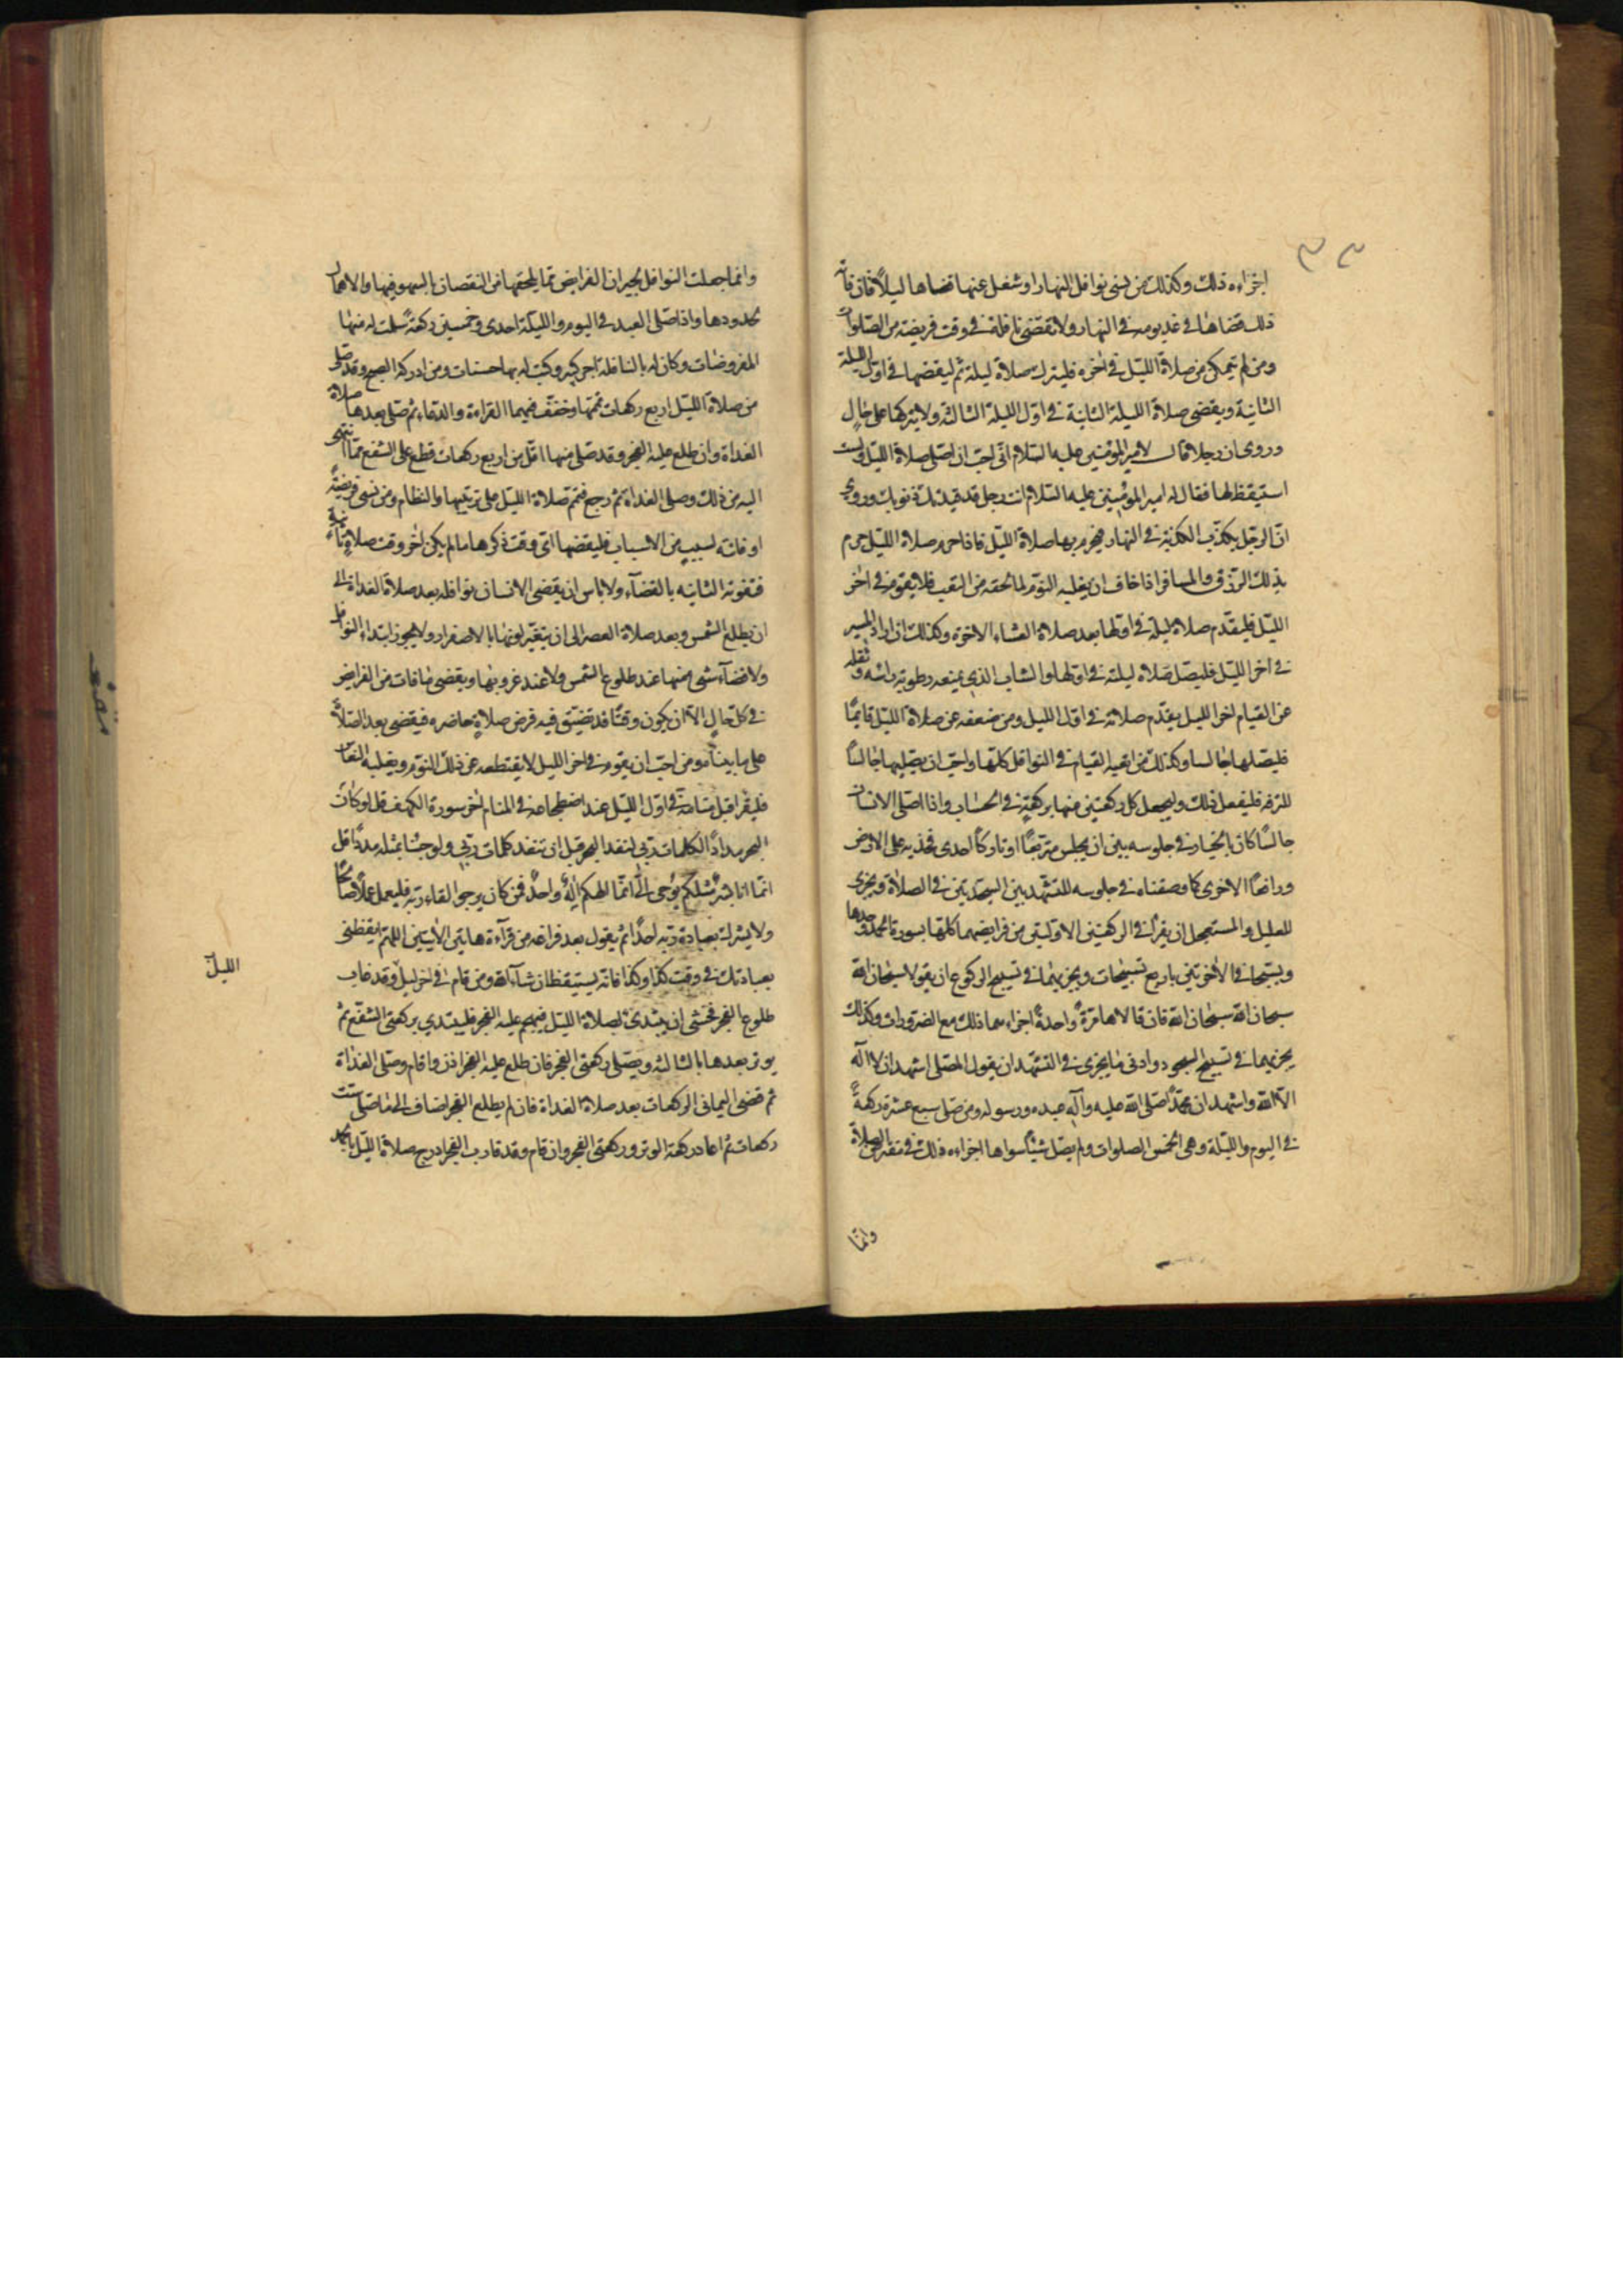 ٣٣
اجزاءه ذلك وكذلك من نسي نوافل النهار او شغل عنها قضاها ليلاً فان فاته
ذلك قضاها في غد يومه في النهار ولا تقضى نافلة في وقت فريضة من الصلوات
ومن لم يتمكن من صلاة الليل في اخره فليترك صلاة ليلة ثم ليقضها في اول الليلة
الثانية ويقضي صلاة الليلة الثانية في اول الليلة الثالثة ولا يتركها على حال
وروي ان رجلا قال لامير المؤمنين عليه السلام اني احب ان اصلي صلاة الليل ولست
استيقظ لها فقال له امير المؤمنين عليه السلام انت رجل قد قيدتك ذنوبك وروي
ان الرجل يكذب الكذبة في النهار فيحرم بها صلاة الليل فاذا حرم صلاة الليل حرم
بذلك الرزق والمسافر اذا خاف ان يغلبه النوم لما لحقه من التعب فلا يقوم في اخر
الليل فليقدم صلاة ليلة في اولها بعد صلاة العشاء الاخرة وكذلك ان اراد المسير
في اخر الليل فليصل صلاة ليلته في اولها والشاب الذي يمنعه رطوبة راسه وثقله
عن القيام اخر الليل يقدم صلاته في اول الليل ومن ضعف عن صلاة الليل قايمًا
فليصلها جالسا وكذلك من اتعبه القيام في النوافل كلها واحب ان يصليها جالسًا
للترفه فليفعل ذلك وليجعل كل ركعتين منها بركعة في الحساب واذا صلى الانسان
جالسًا كان بالخيار في جلوسه بين ان يجلس متربعًا او تاركًا احدى فخذيه على الارض
ورافعًا الاخرى كما وصفناه في جلوسه للتشهد بين السجدتين في الصلاة ويجزي
للعليل والمستعجل ان يقرأ في الركعتين الاولتين من فرايضهما كلها بسورة الحمد وحدها
ويسبحا في الاخرتين باربع تسبيحات ويجزيهما في تسبيح الركوع ان يقولا سبحان الله
سبحان الله سبحان الله فان قالاها مرةً واحدةً اجزاءهما ذلك مع الضرورات وكذلك
يجزيهما في تسبيح السجود وادنى ما يجزي في التشهد ان يقول المصلي اشهد ان لا اله
الا الله واشهد ان محمدًا صلى الله عليه وآله عبده ورسوله ومن صلى سبع عشرة ركعةً
في اليوم والليلة وهي الخمس الصلوات ولم يصل شيئًا سواها اجزاءه ذلك في مفترض الصلاة
وانما
وانما جعلت النوافل لجبران الفرايض مما يلحقها من النقصان بالسهو فيها والاهمال
لحدودها واذا صلى العبد في اليوم والليلة احدى وخمسين ركعةً سلمت له منها
المفروضات وكان له بالنافلة اجر كبير وكتب له بها حسنات ومن ادركه الصبح وقد صلى
من صلاة الليل اربع ركعات تممها وخفف فيهما القراءة والدعاء ثم صلى بعدها صلاة
الغداة وان طلع عليه الفجر وقد صلى منها اقل من اربع ركعات قطع على الشفع مما انتهى
اليه من ذلك وصلى الغداة ثم رجع فتمم صلاة الليل على ترتيبها والنظام ومن نسي فريضةً
او فاتته لسبب من الاسباب فليقضها اي وقت ذكرها ما لم يكن اخر وقت صلاة ثانية
فتفوته الثانيه بالقضاء ولا باس ان يقضي الانسان نوافله بعد صلاة الغداة الى
ان يطلع الشمس وبعد صلاة العصر الى ان يتغير لونها بالاصفرار ولا يجوز ابتداء النوافل
ولا قضاء شيء منها عند طلوع الشمس ولا عند غروبها ويقضي ما فات من الفرايض
في كل حال الا ان يكون وقتًا قد تضيق فيه فرض صلاة حاضره فيقضي بعد الصلاة
على ما بيناه ومن احب ان يقوم في اخر الليل لا يقتطعه عن ذلك النوم ويغلبه النعاس
فليقرأ قبل منامه في اول الليل عند اضطجاعه في المنام اخر سورة الكهف قل لو كان
البحر مدادًا لكلمات ربي لنفد البحر قبل ان تنفد كلمات ربي ولو جئنا بمثله مددًا قل
انما انا بشر مثلكم يوحى الي انما الهكم الهٌ واحدٌ فمن كان يرجو القاء ربه فليعمل عملًا صالحًا
ولا يشرك بعبادة ربه احدًا ثم يقول بعد فراغه من قرآءة هاتين الايتين اللهم ايقظني
بعبادتك في وقت كذا وكذا فانه يستيقظ ان شاء الله ومن قام في اخر ليل وقد قارب
الليل
طلوع الفجر فخشي ان يبتدئ بصلاة الليل فيهجم عليه الفجر فليبتدي بركعتي الشفع ثم
يوتر بعدها بالثالثه ويصلي ركعتي الفجر فان طلع عليه الفجر اذن واقام وصلى الغداة
ثم قضى الثماني الركعات بعد صلاة الغداة فان لم يطلع الفجر اضاف الى ما صلى ست
ركعات ثم اعاد ركعة الوتر وركعتي الفجر وان قام وقد قارب الفجر ادرج صلاة الليل بالحمد